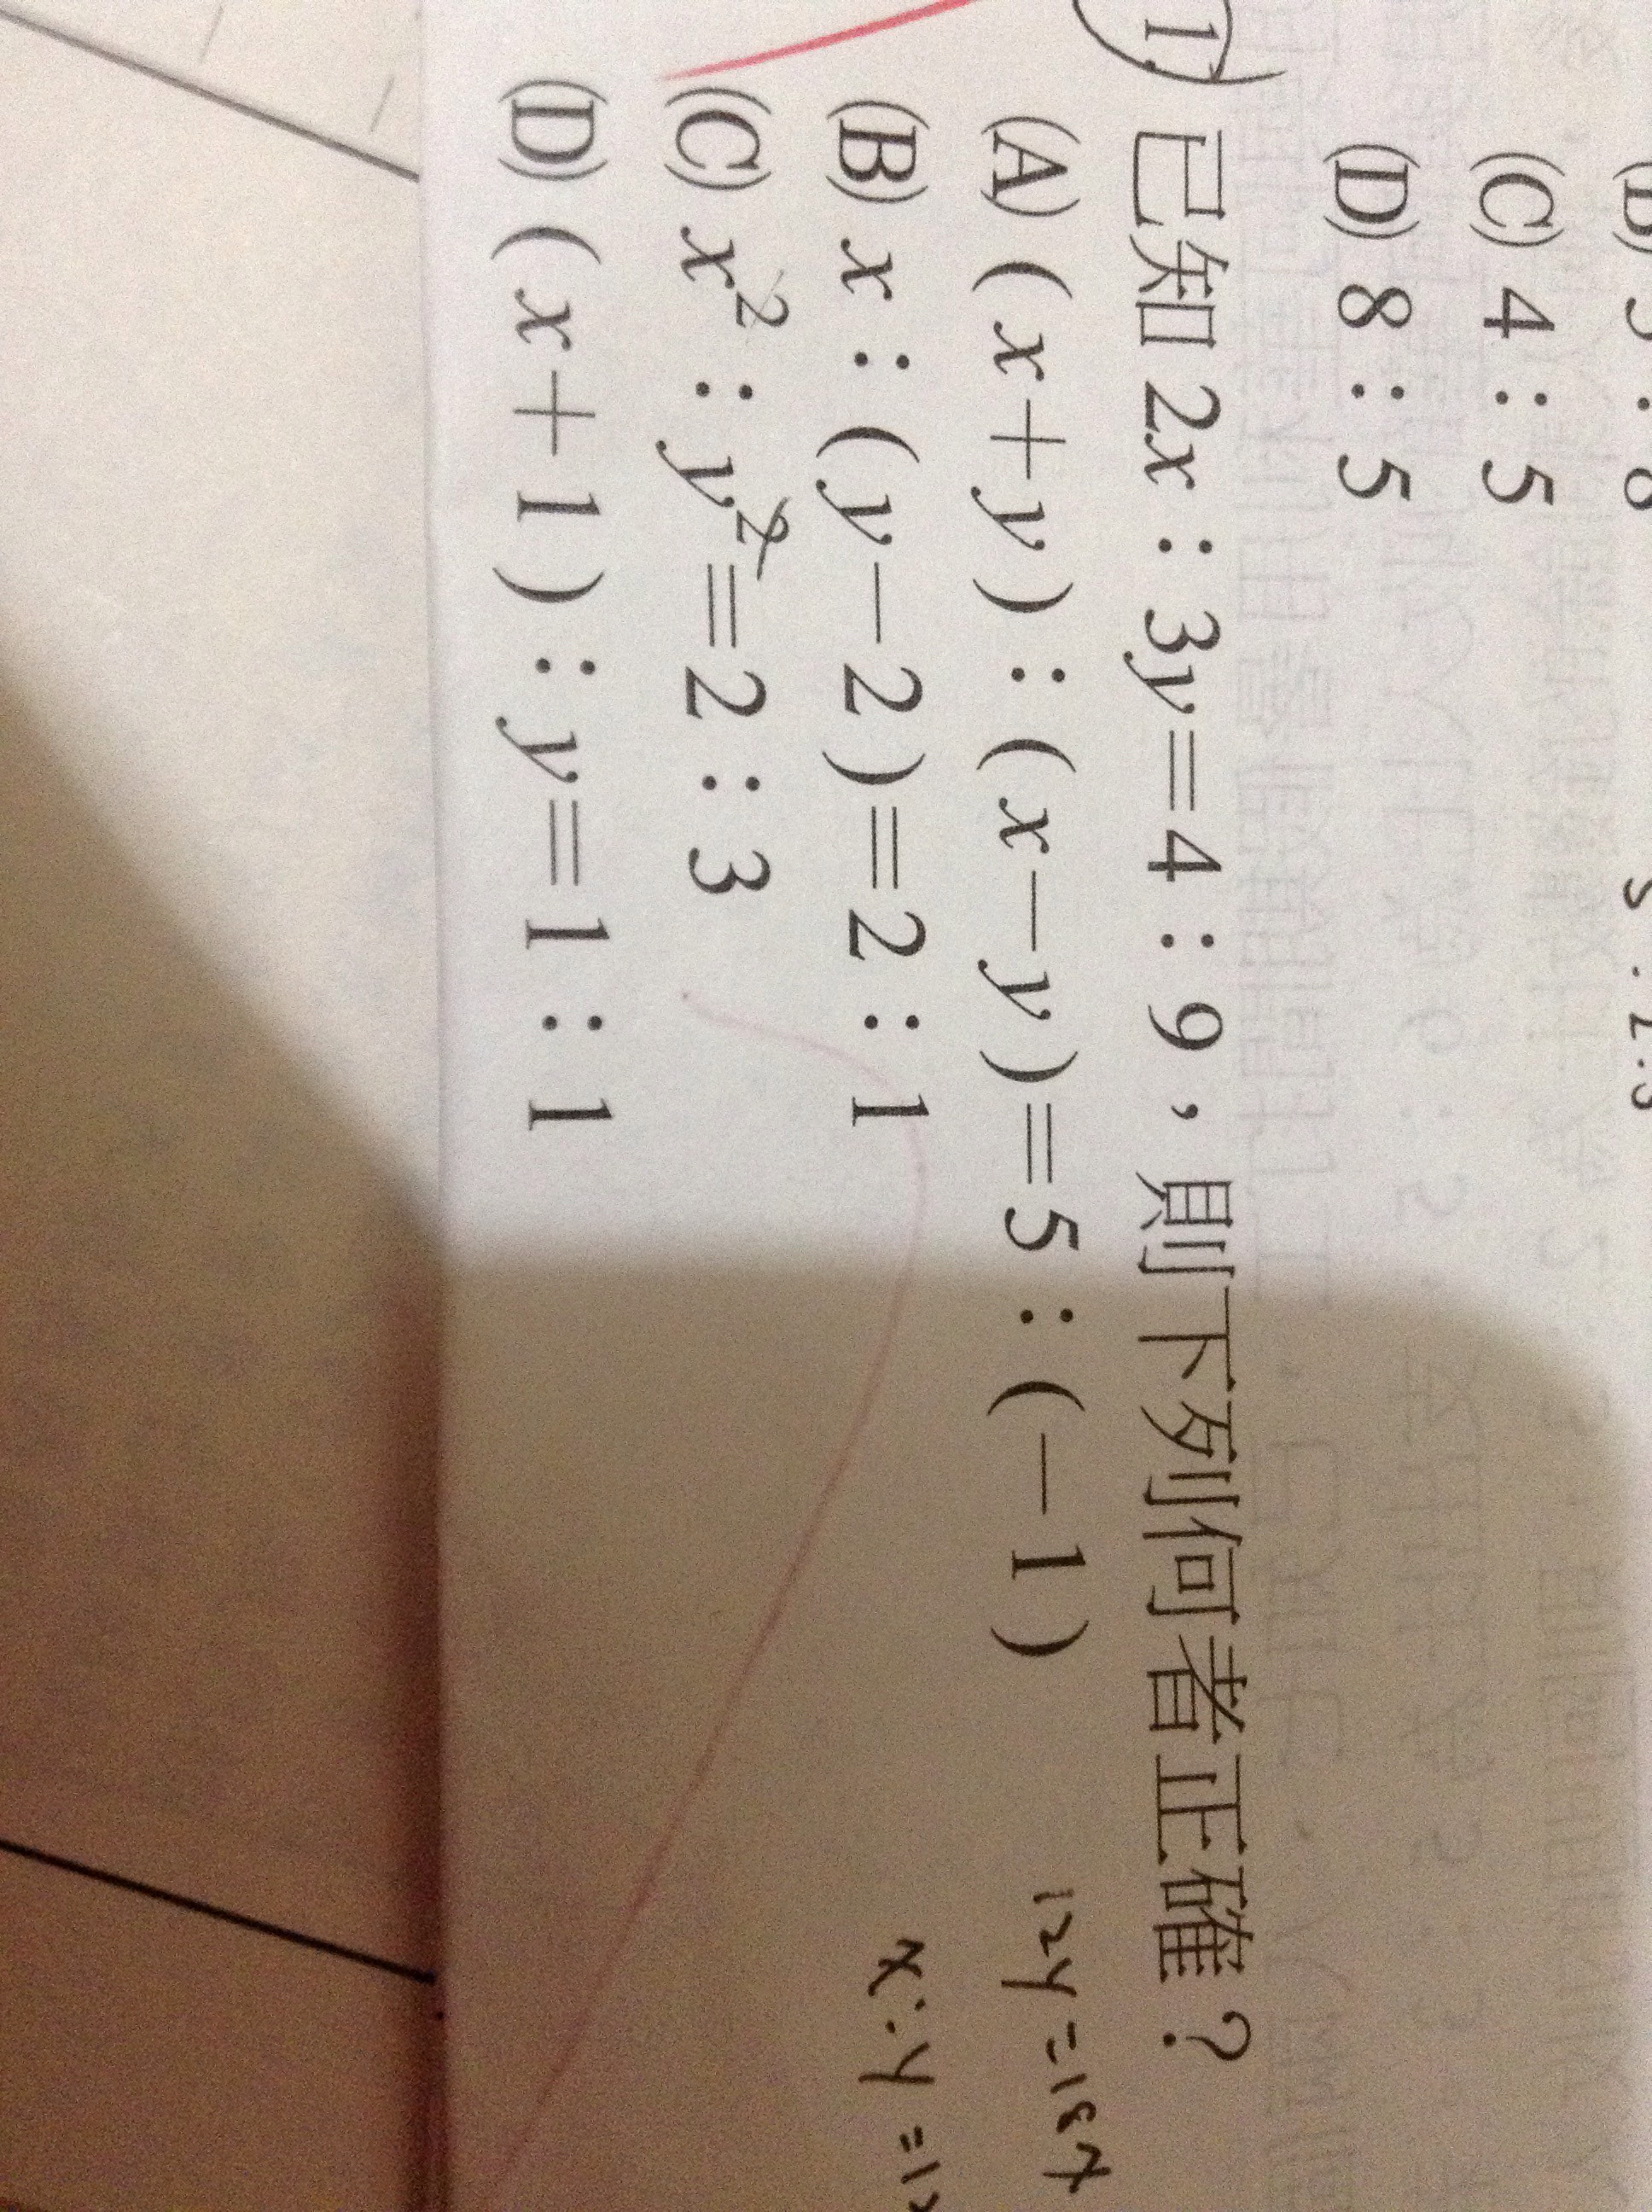 (C) 4：5
(D) 8：5
1. 已知 2x：3y=4：9，則下列何者正確？
(A) (x+y)：(x−y)=5：(−1)
(B) x：(y−2)=2：1
(C) x²：y²=2：3
(D) (x+1)：y=1：1
12y=18x
x:y=12